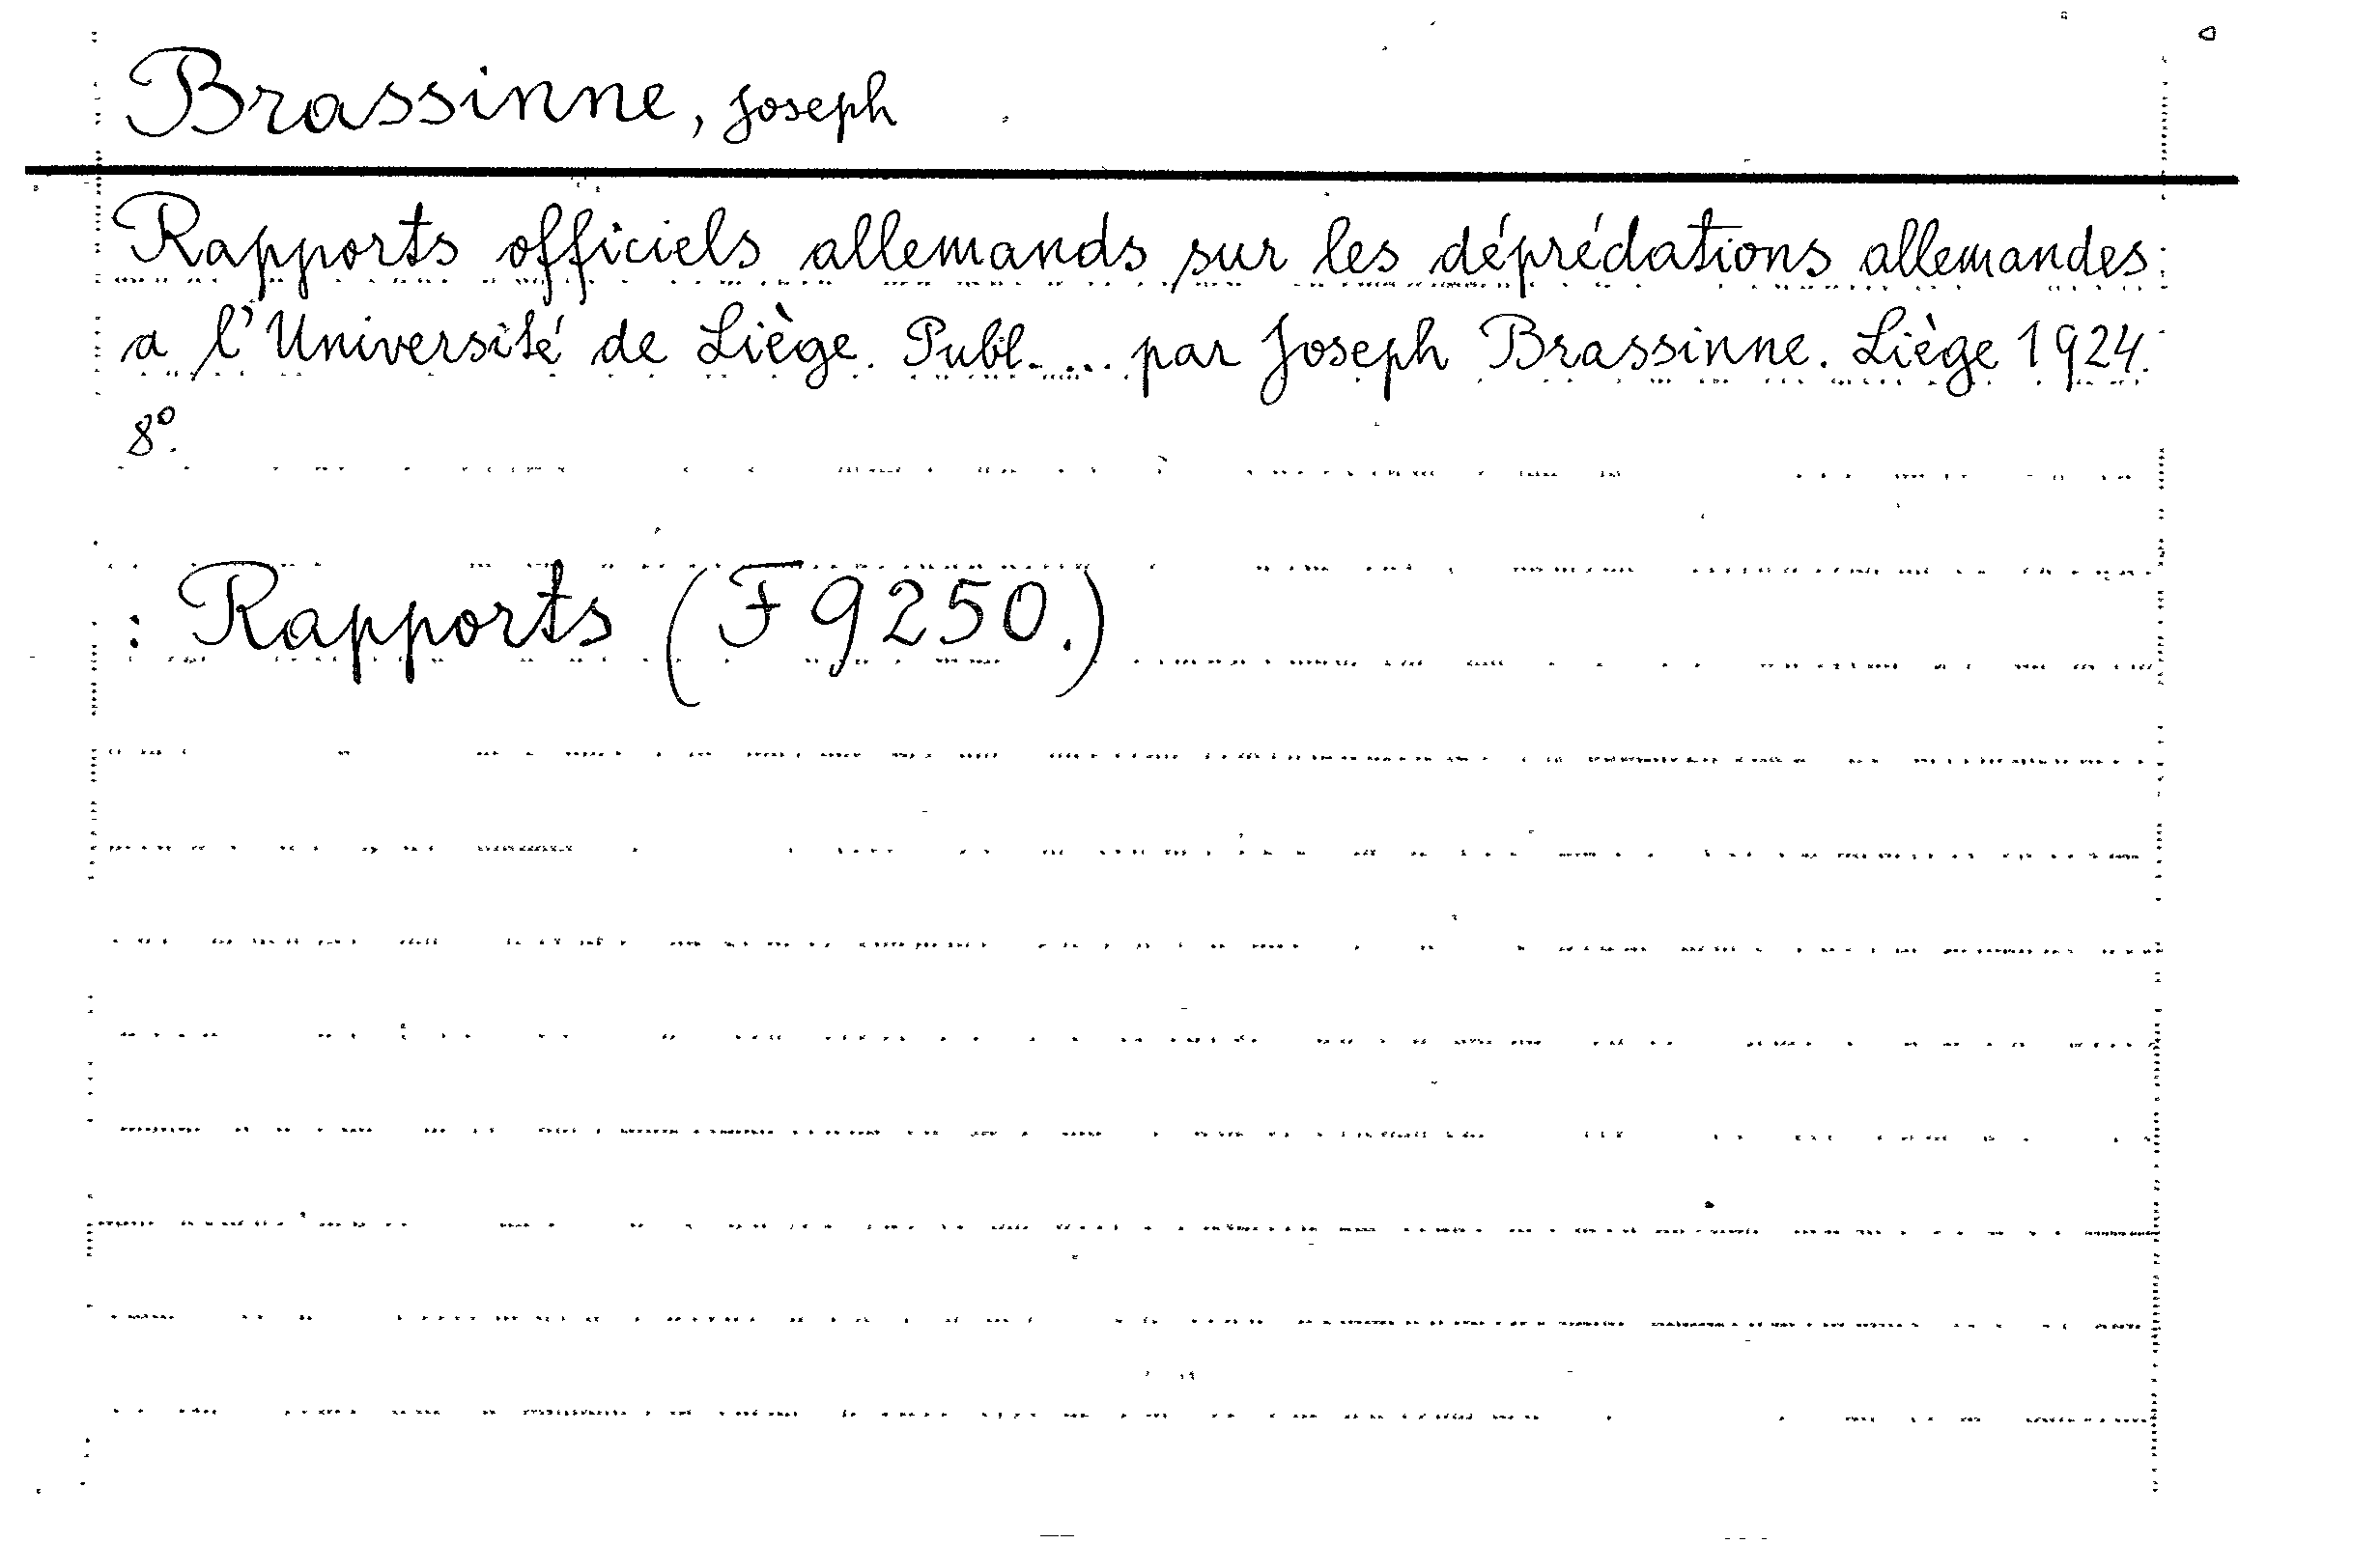 Brassinne, Joseph
Rapports officiels allemands sur les déprédations allemandes
a l'Université de Liège. Publ. ... par Joseph Brassinne. Liège 1924.
8°.
: Rapports (F 9250.)